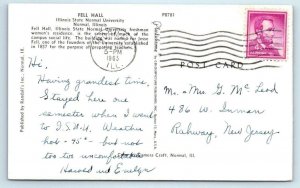 FELL HALL
Illinois State Normal University
Normal, Illinois
Fell Hall, Illinois State Normal University freshman
women's residence is the center of much of the
campus social life. The building was named for Jesse
Fell, one of the founders of the University established
in 1857 for the purpose of preparing teachers.
P8781
PM
1963
ILL.
POST CARD
Published by Randall's Inc., Normal, Ill.
Hi,
Having grandest time.
Stayed here one
semester when I went
to I.S.N.U. Weather
hot - 95° - but not
too uncomfortable
Harold and Evelyn
Mr. & Mrs. G. Mc Leod
486 W. Inman
Rahway, New Jersey
Camera Craft, Normal, Ill.